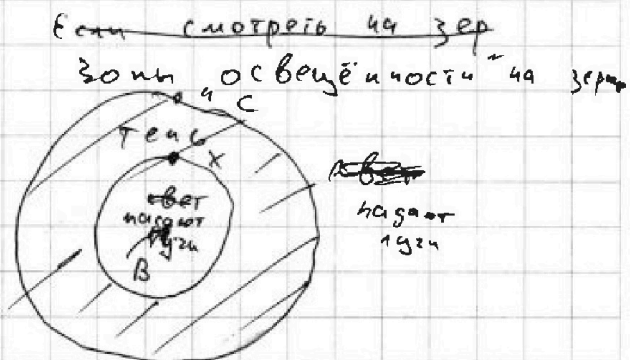 Если смотреть на зер
Зоны "освещённости" на зерк
C
тень
X
свет
падают
лучи
B
свет
падают
лучи